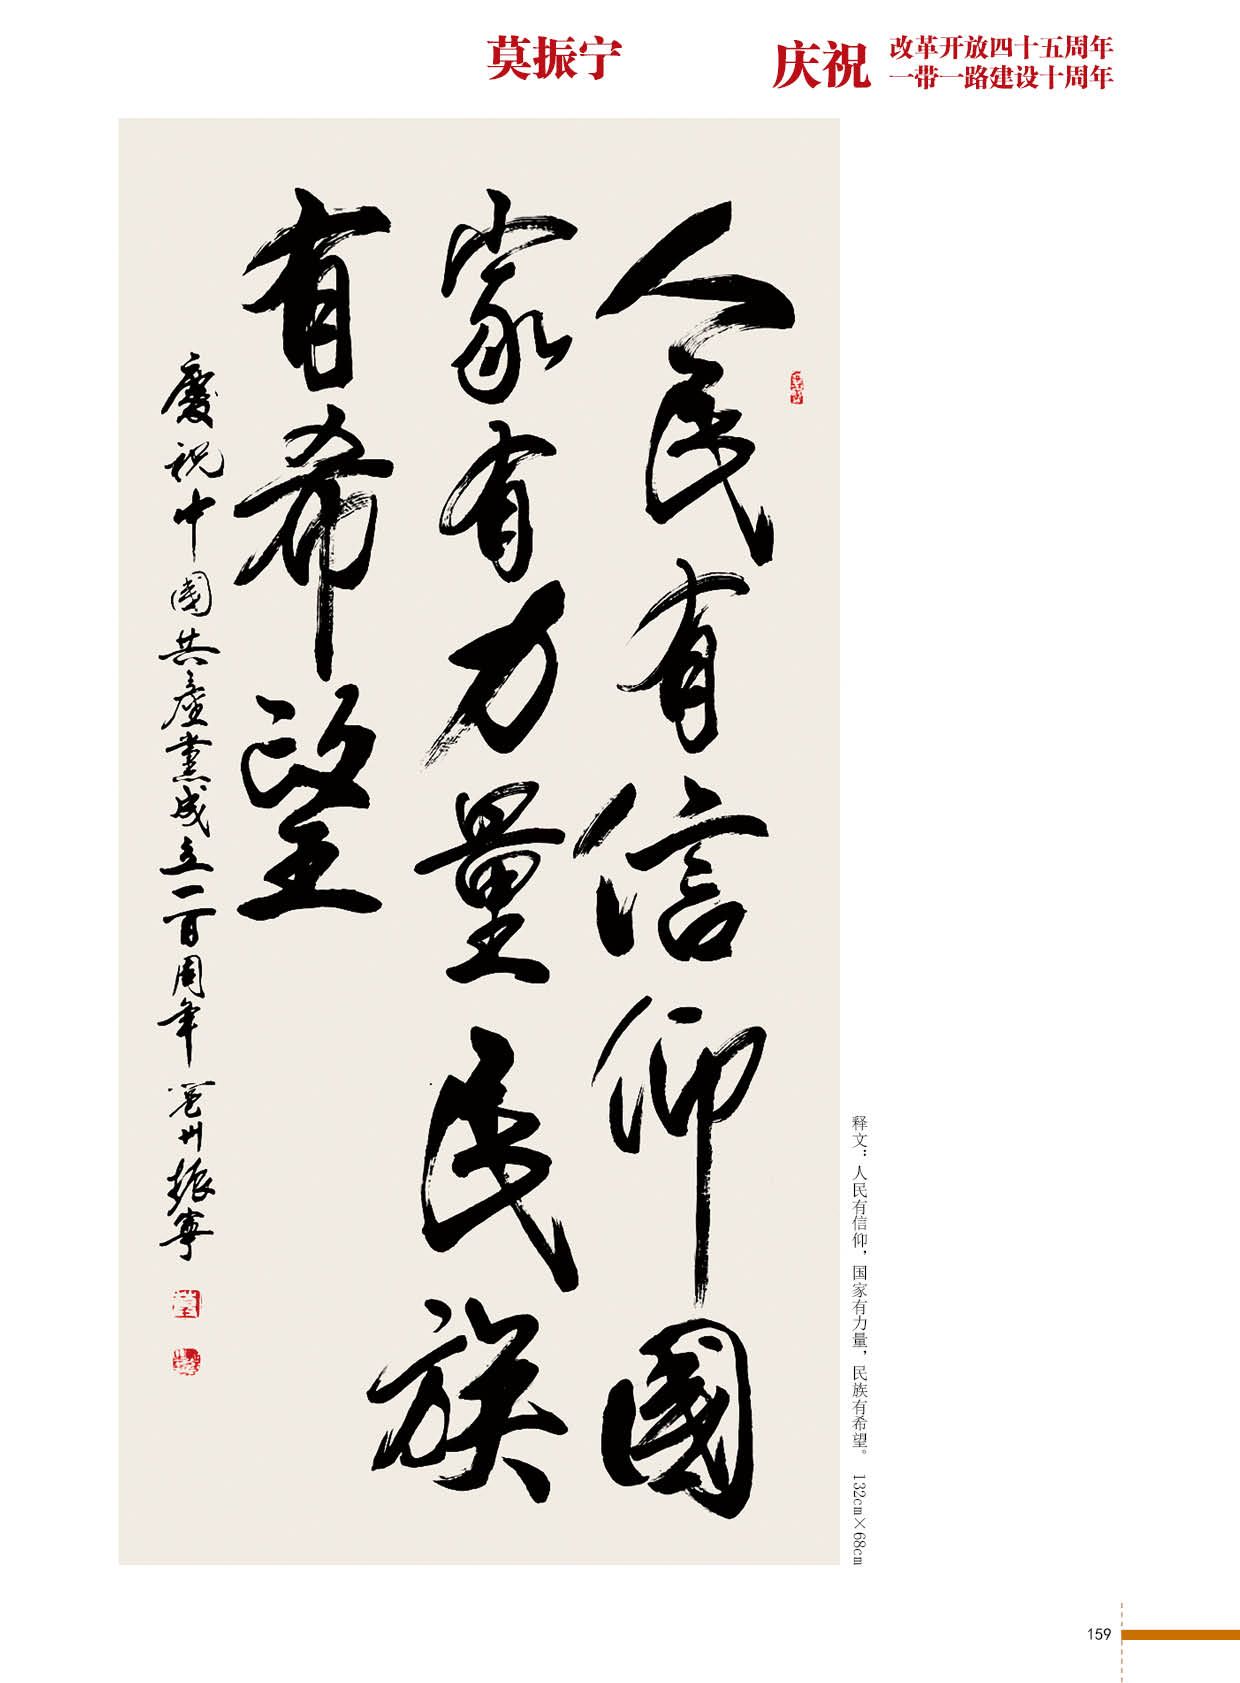 莫振宁
庆祝
改革开放四十五周年
一带一路建设十周年
人民有信仰國
家有力量民族
有希望
慶祝中國共產黨成立一百周年 邕州振寧
释文：人民有信仰，国家有力量，民族有希望。 132cm×68cm
159